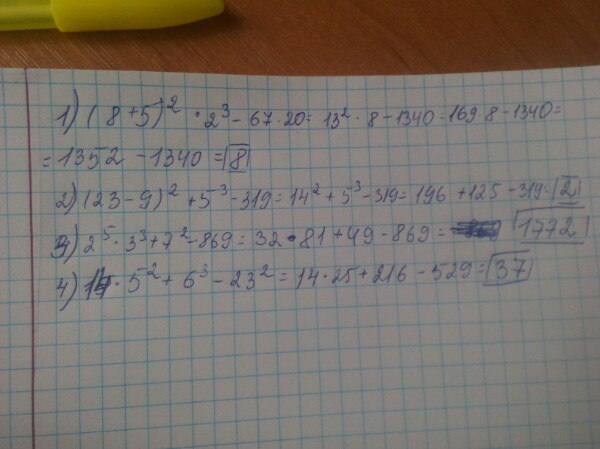 1) (8+5)² · 2³ - 67 · 20 = 13² · 8 - 1340 = 169 · 8 - 1340 =
= 1352 - 1340 = 8
2) (23 - 9)² + 5³ - 319 = 14² + 5³ - 319 = 196 + 125 - 319 = 2
3) 2⁵ · 3³ + 7² - 869 = 32 · 81 + 49 - 869 = 1772
4) 14 · 5² + 6³ - 23² = 14 · 25 + 216 - 529 = 37